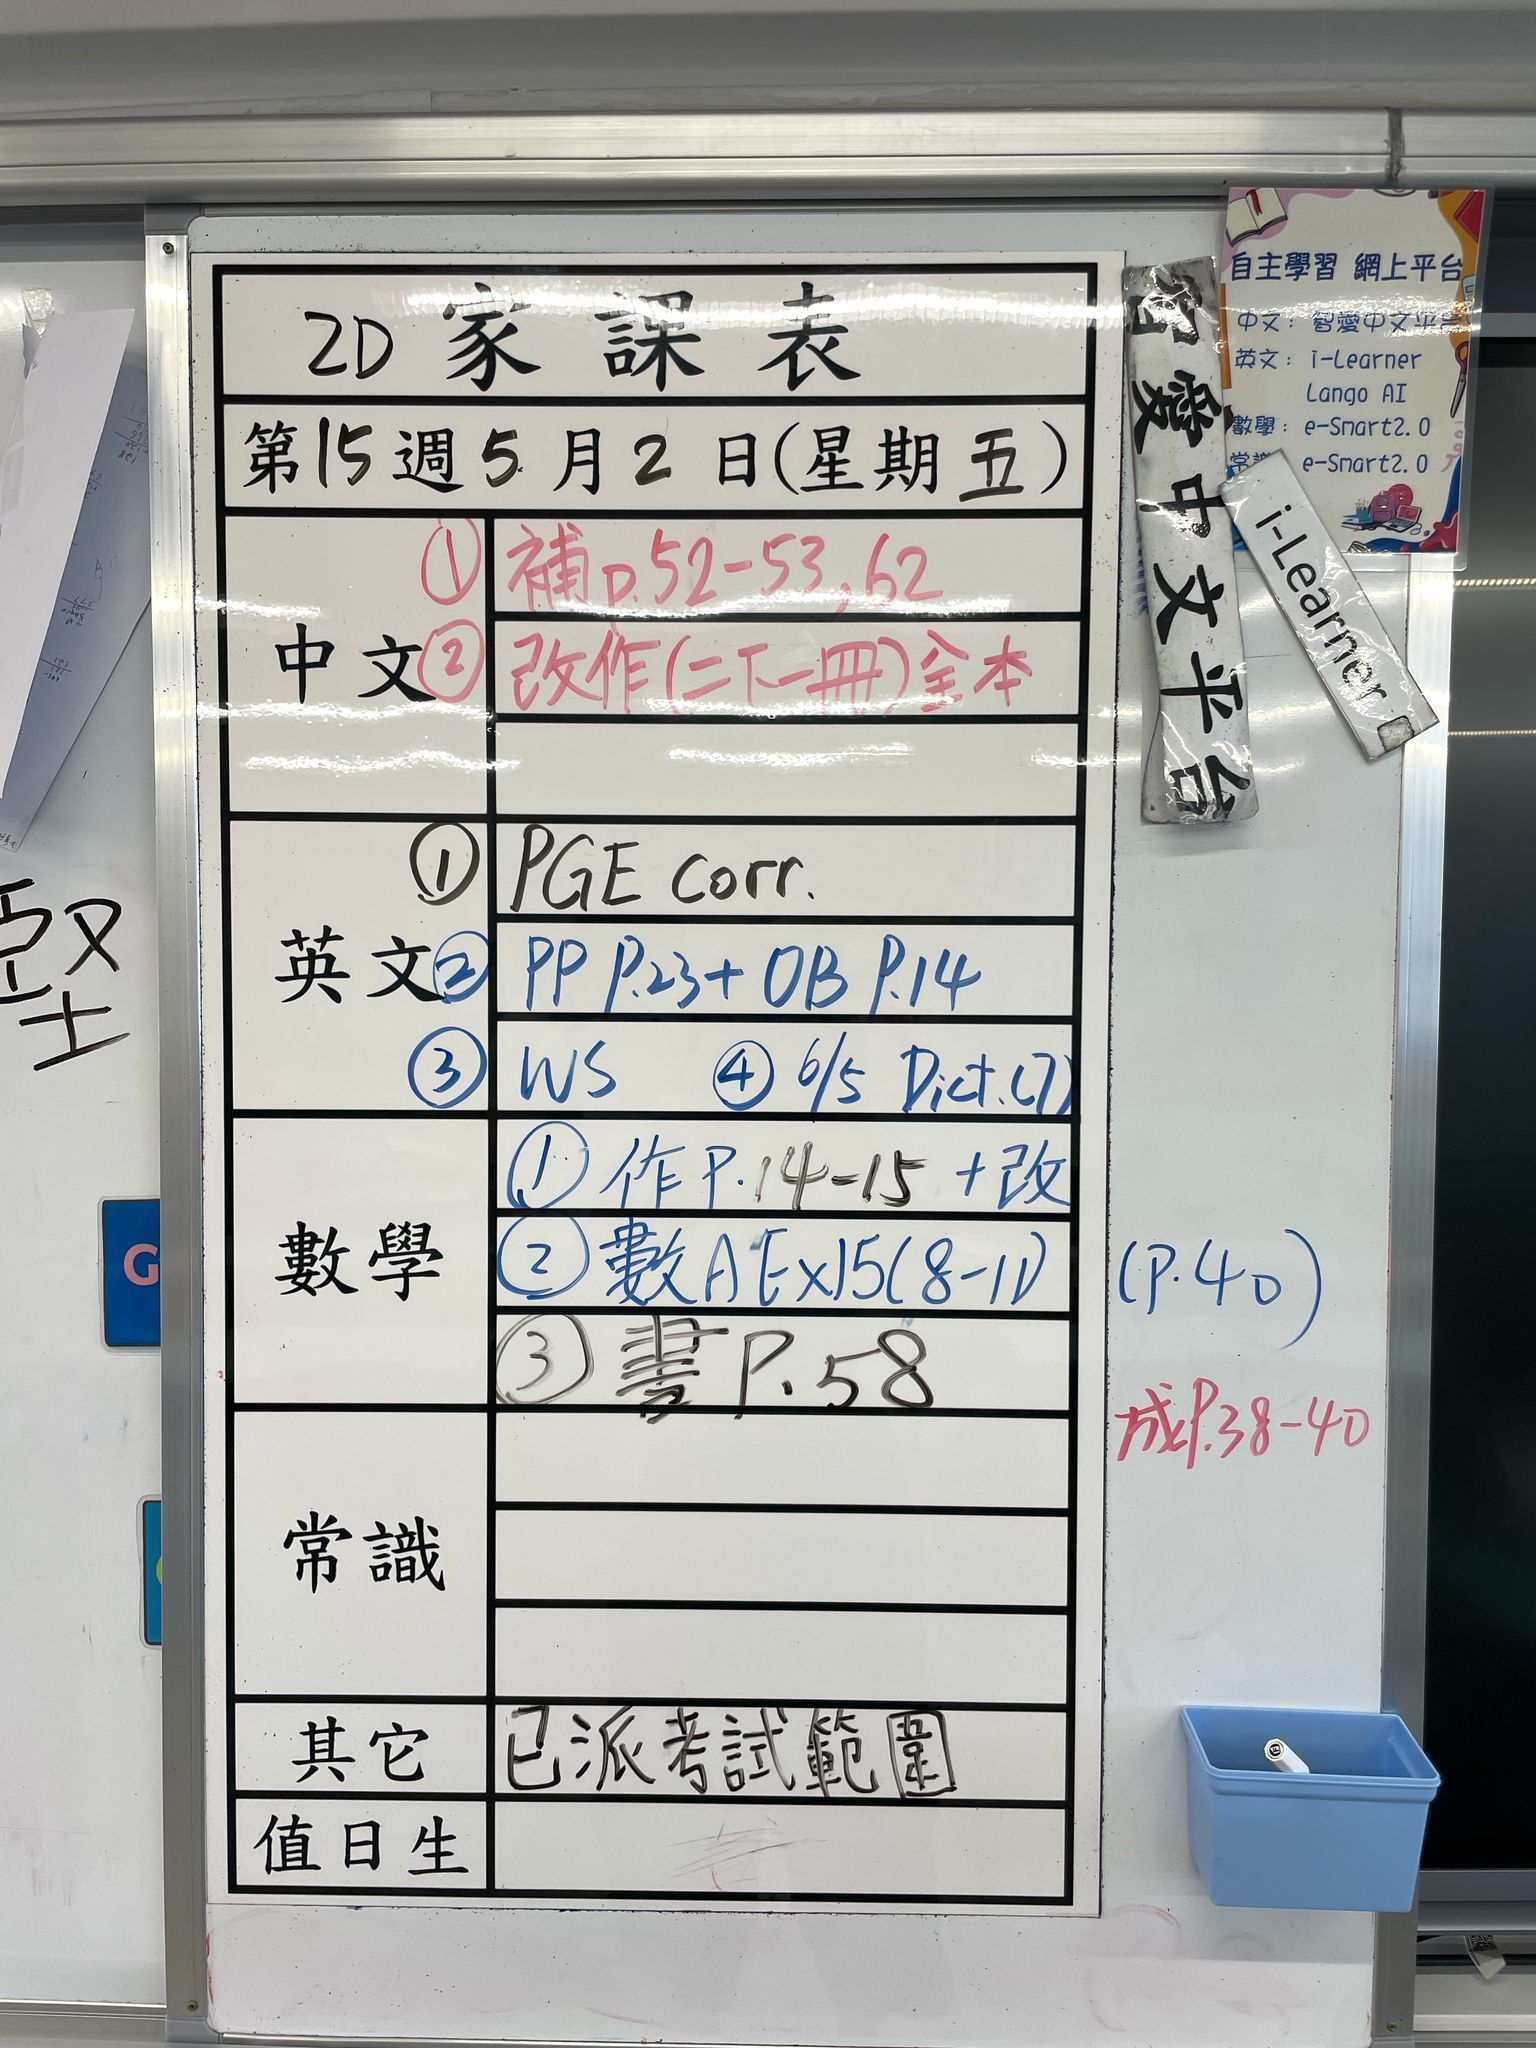 2D 家課表
第15週5月2日(星期五)
中文
① 補p.52-53,62
② 改作(二下一冊)全本
英文
① PGE corr.
② PP P.23+ OB P.14
③ WS ④ 6/5 Dict.(7)
數學
① 作P.14-15 +改
② 數A Ex15(8-11) (P.40)
③ 書P.58
成P.38-40
常識
其它
已派考試範圍
值日生
自主學習 網上平台
中文: 智愛中文平台
英文: i-Learner
Lango AI
數學: e-Smart2.0
常識 e-Smart2.0
智愛中文平台
i-Learner
堅
G